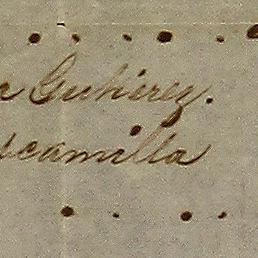 a Gutiérez.
scamilla